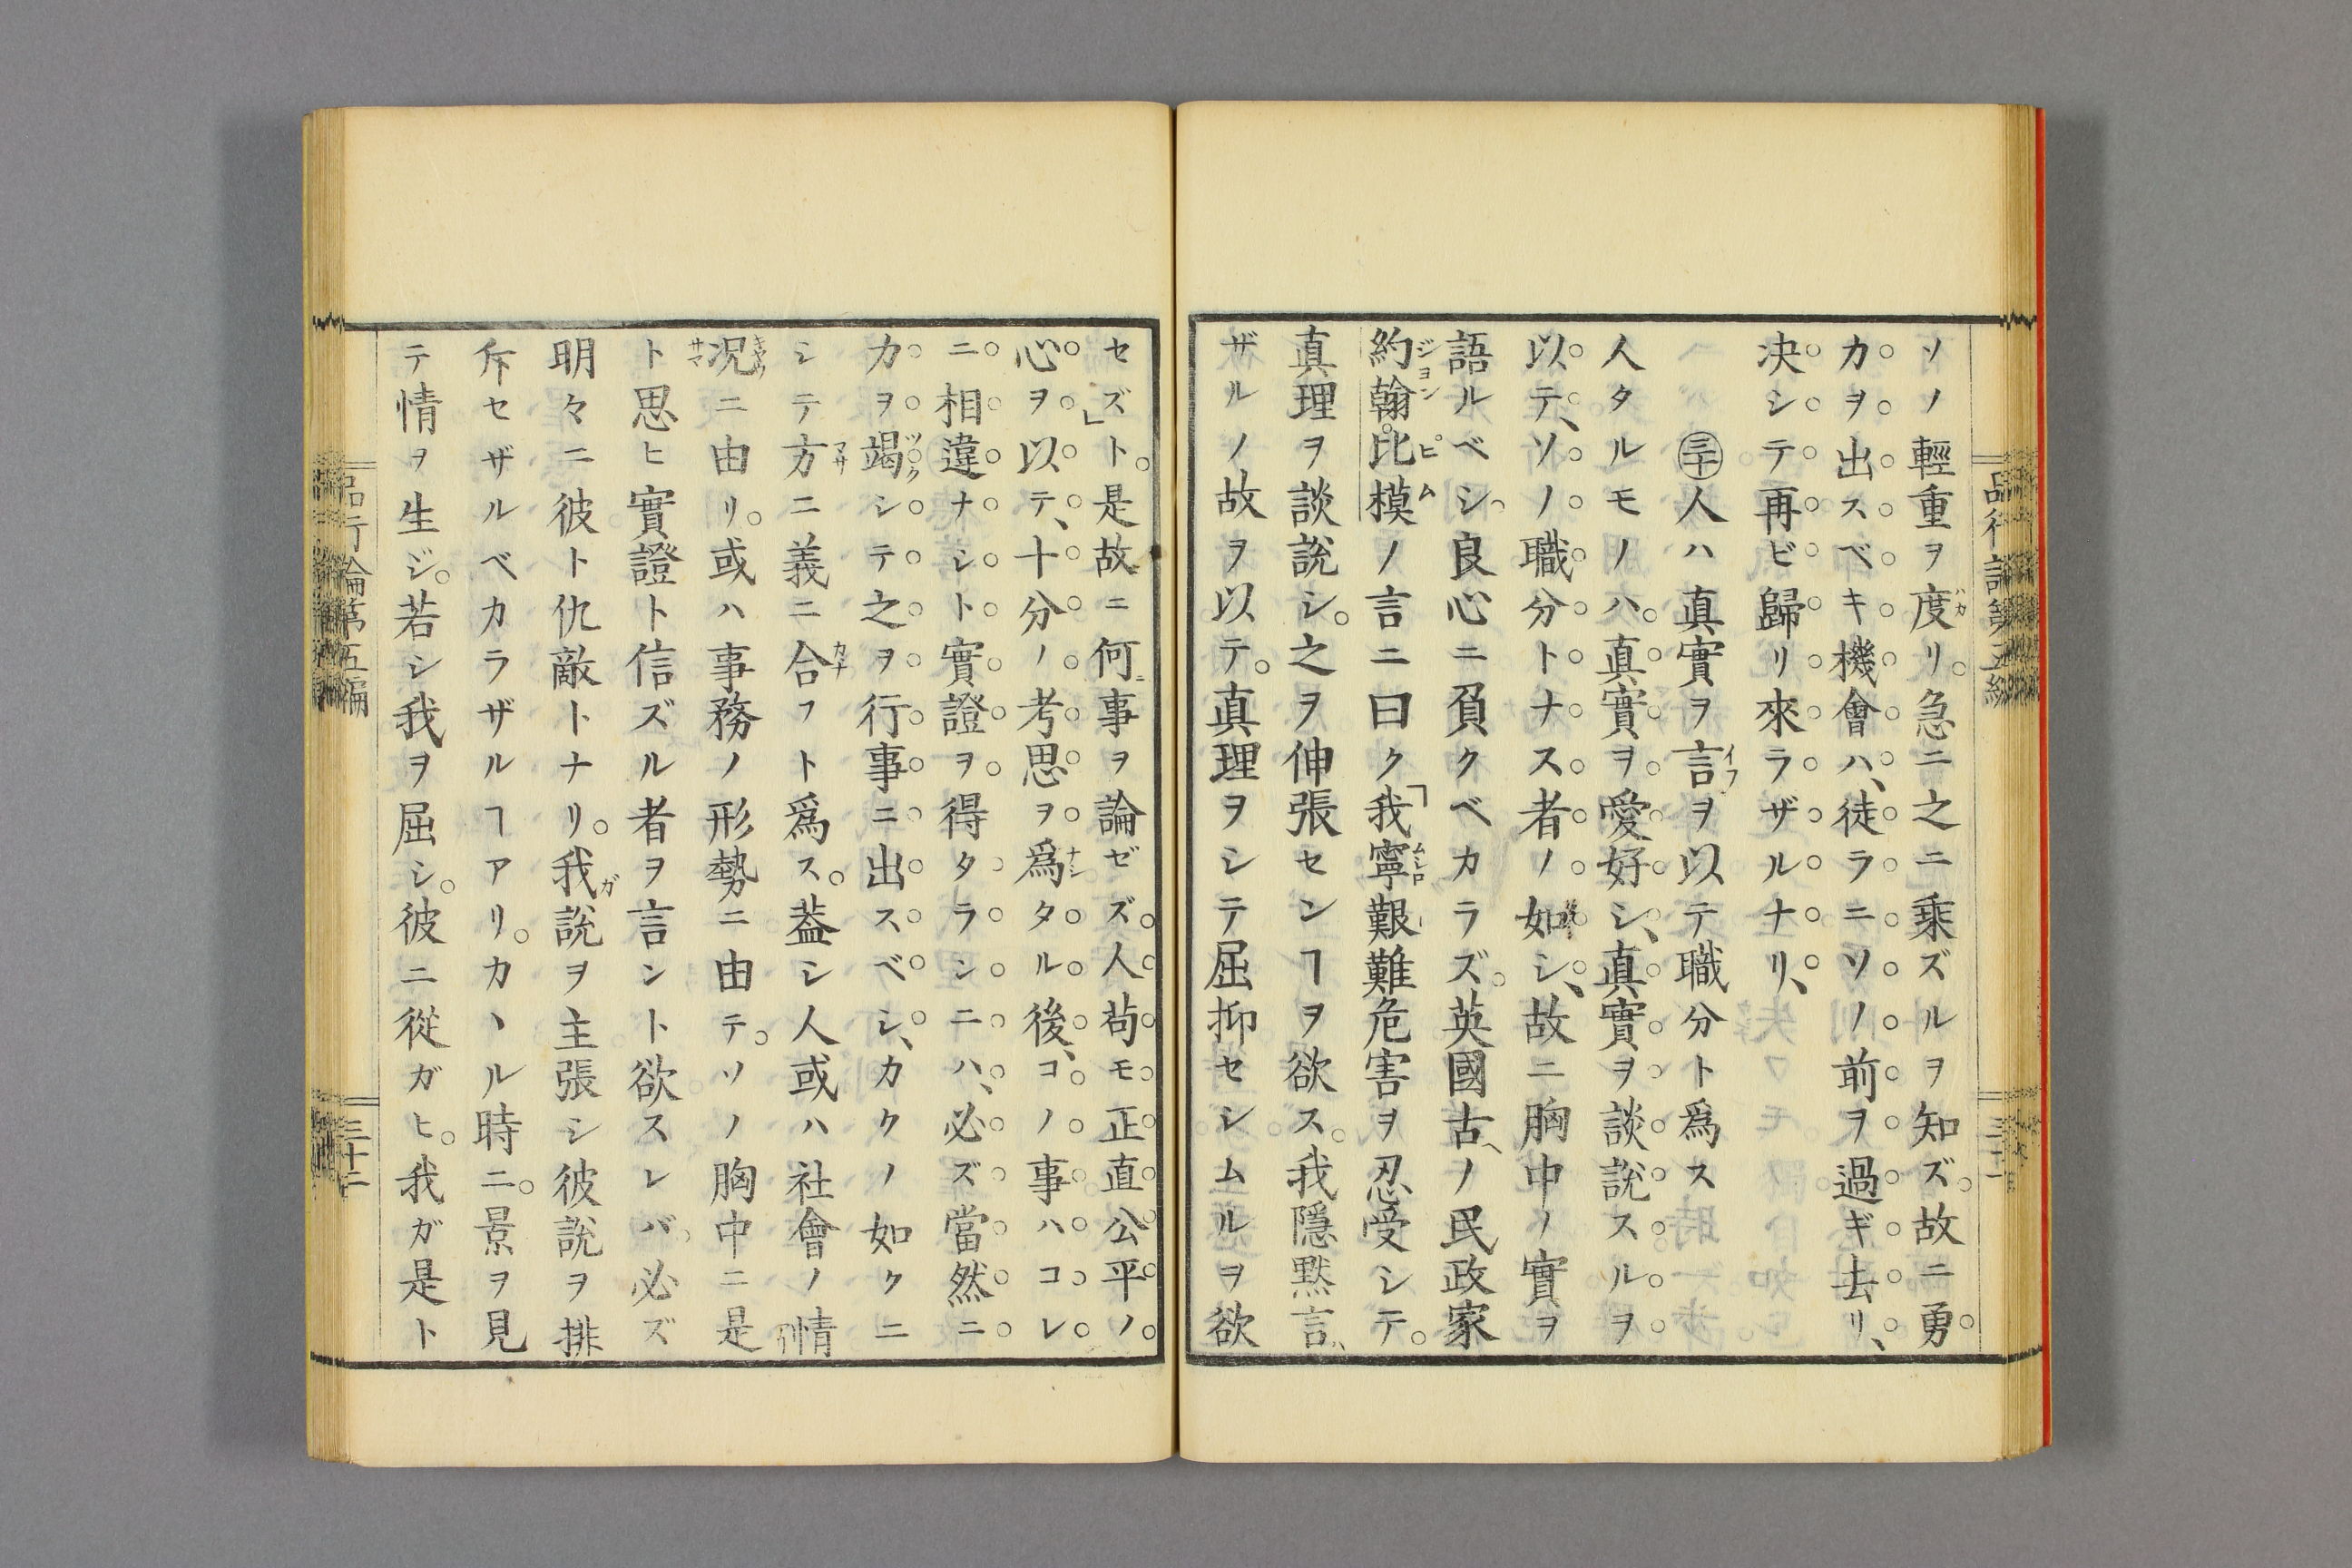 ソノ輕重ヲ度リ。急ニ之ニ乘ズルヲ知ズ。故ニ勇
力ヲ出スベキ機會ハ、徒ラニソノ前ヲ過ギ去リ、
決シテ再ビ歸リ來ラザルナリ、
㊂人ハ真實ヲ言ヲ以テ職分ト爲ス
人タルモノハ。真實ヲ愛好シ、真實ヲ談說スルヲ
以テ、ソノ職分トナス者ノ如シ、故ニ胸中ノ實ヲ
語ルベシ、良心ニ負クベカラズ。英國古ノ民政家
約翰比模ノ言ニ曰ク「我寧艱難危害ヲ忍受シテ。
真理ヲ談說シ。之ヲ伸張センヿヲ欲ス。我隱默言ハ
ザルノ故ヲ以テ。真理ヲシテ屈抑セシムルヲ欲
セズ」ト。是故ニ何事ヲ論ゼズ。人苟モ正直公平ノ
心ヲ以テ、十分ノ考思ヲ爲タル後、コノ事ハコレ
ニ相違ナシト實證ヲ得タランニハ、必ズ當然ニ
力ヲ竭シテ之ヲ行事ニ出スベシ、カクノ如クニ
シテ方ニ義ニ合フト爲ス。蓋シ人或ハ社會ノ情
況ニ由リ。或ハ事務ノ形勢ニ由テ。ソノ胸中ニ是
ト思ヒ實證ト信ズル者ヲ言ント欲スレバ、必ズ
明々ニ彼ト仇敵トナリ。我說ヲ主張シ彼說ヲ排
斥セザルベカラザルヿアリ。カヽル時ニ。景ヲ見
テ情ヲ生ジ。若シ我ヲ屈シ。彼ニ從ガヒ。我ガ是ト
品行論第五編
三十二